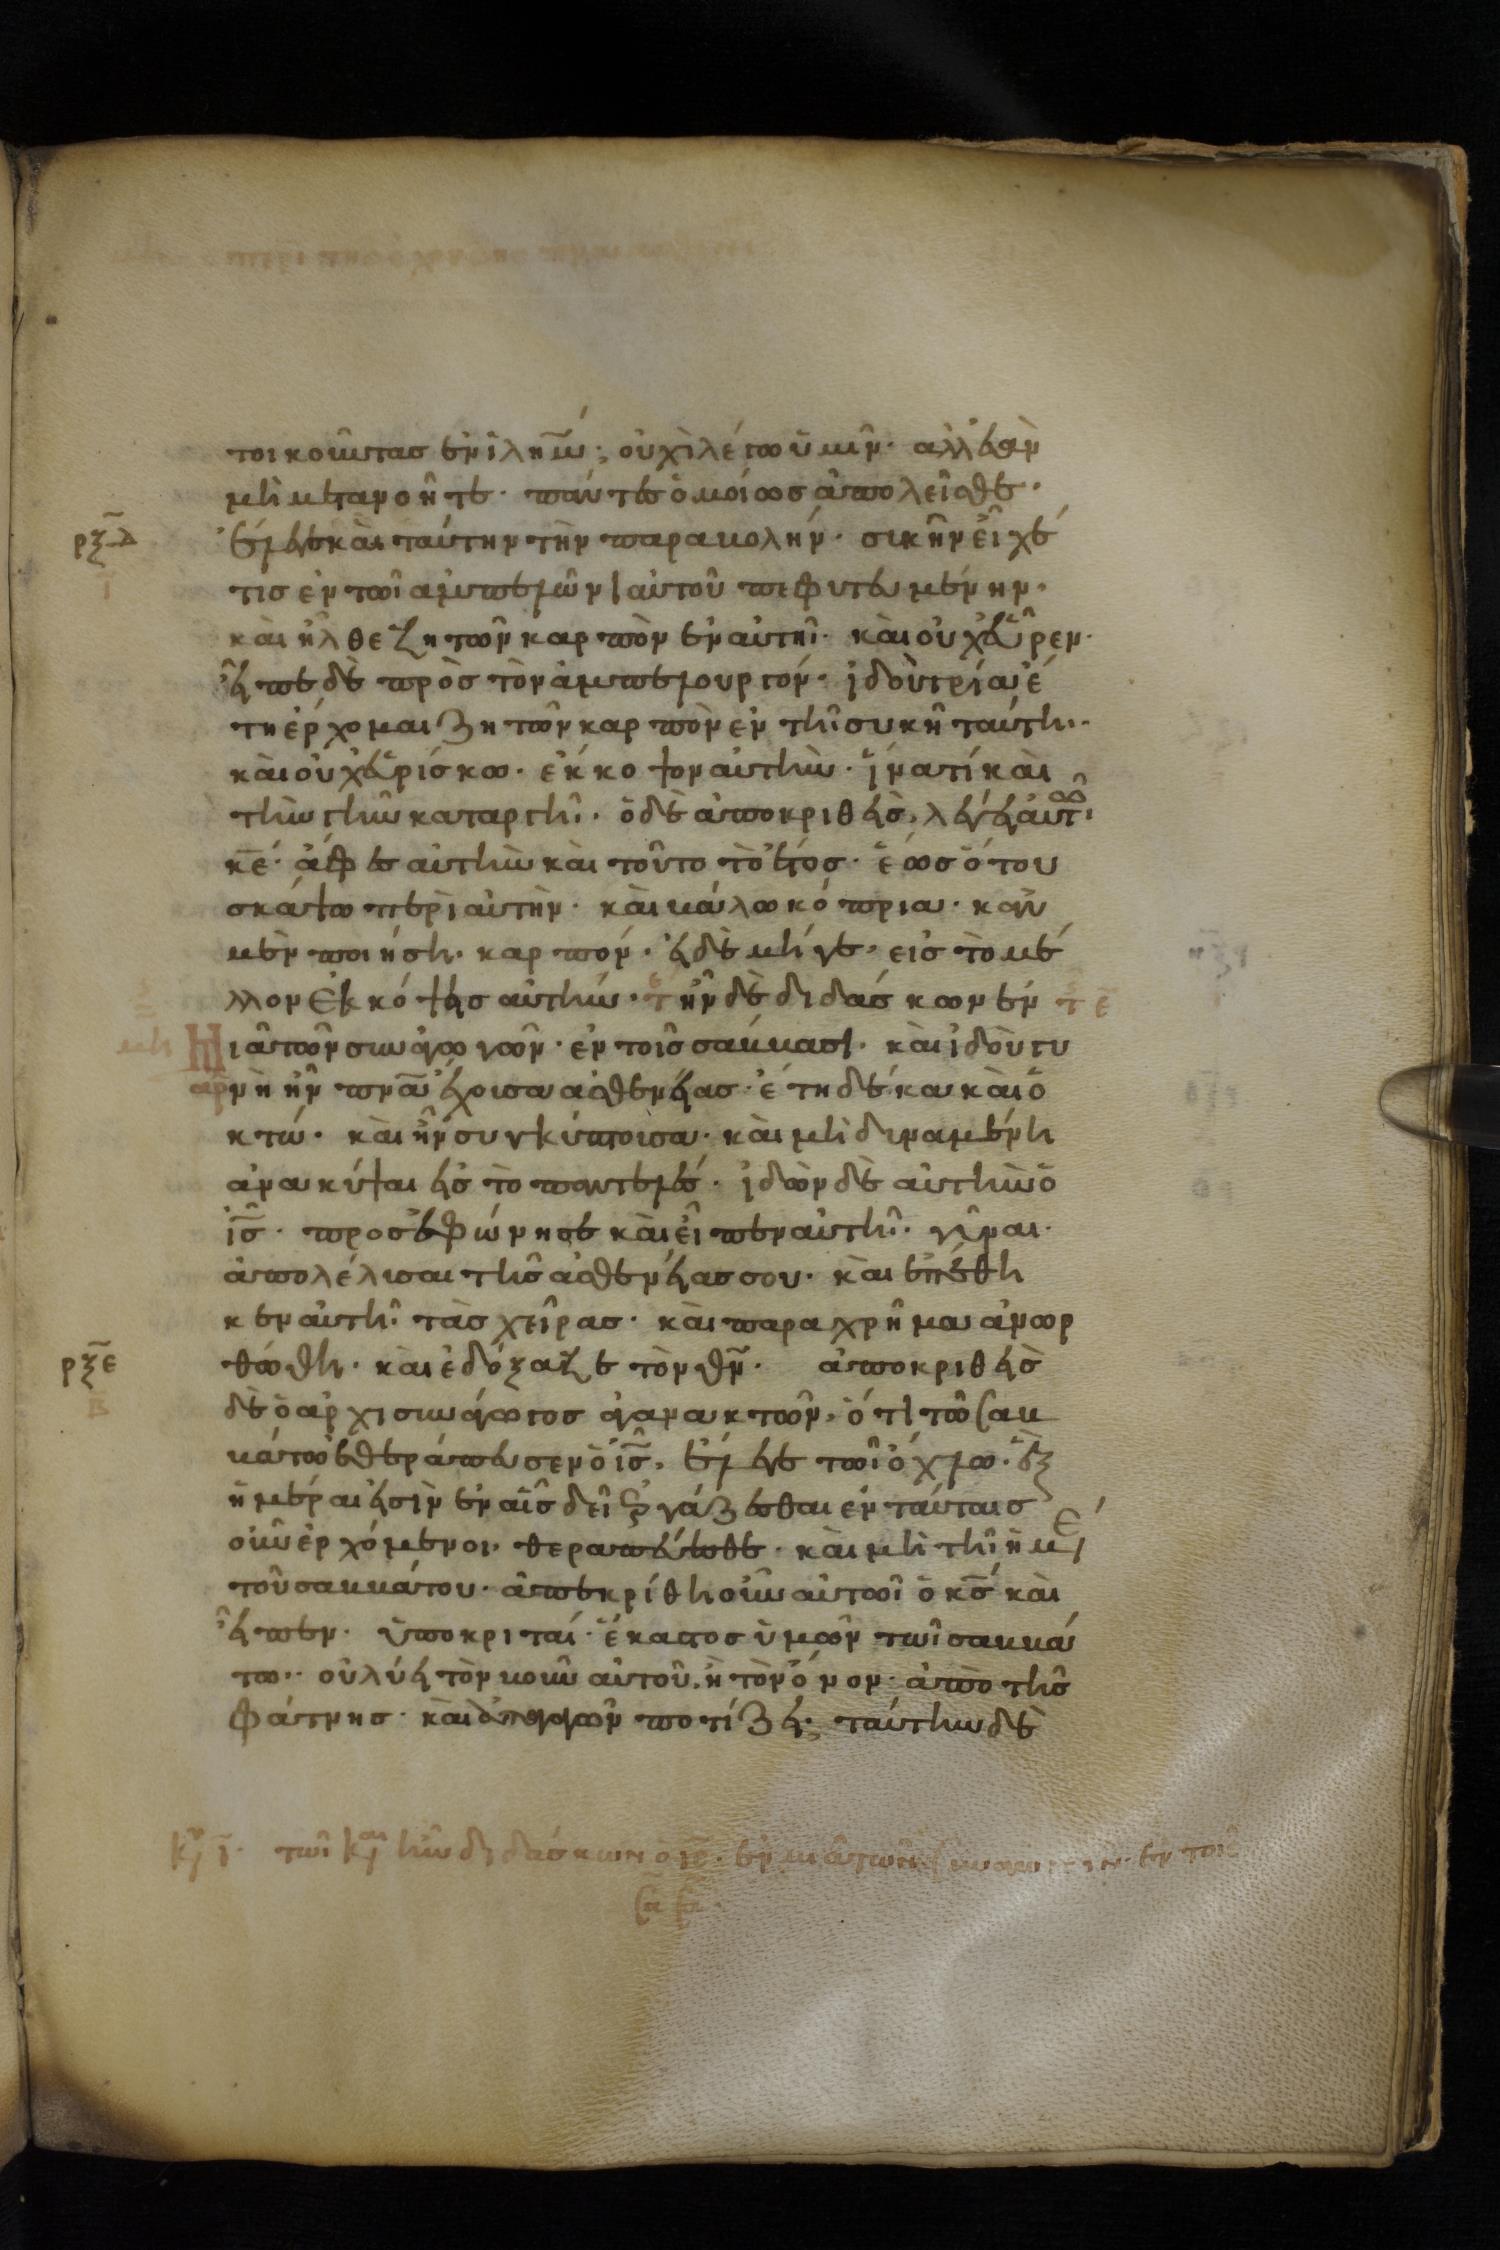 τοικοῦντας ἐν ἰλῆμ; οὐχὶ λέγω ὑμῖν· ἀλλ' ἐὰν
μὴ μετανοῆτε· πάντες ὁμοίως ἀπολεῖσθε·
ρξδ ἔλεγε καὶ ταύτην τὴν παραβολήν· συκῆν εἶχέ
ι τις ἐν τῶι ἀμπελῶνι αὐτοῦ πεφυτευμένην·
καὶ ἦλθε ζητῶν καρπὸν ἐν αὐτῆι· καὶ οὐχ εὗρεν·
εἶπε δὲ πρὸς τὸν ἀμπελουργόν· ἰδοὺ τρία ἔ
τη ἔρχομαι ζητῶν καρπὸν ἐν τῆι συκῆ ταύτη·
καὶ οὐχ εὑρίσκω· ἔκκοψον αὐτὴν· ἵνα τί καὶ
τὴν γῆν καταργῆ· ὁ δὲ ἀποκριθεὶς, λέγει αὐτῶ·
κε· ἄφες αὐτὴν καὶ τοῦτο τὸ ἔτος· ἕως ὅτου
σκάψω περὶ αὐτὴν· καὶ βάλω κόπρια· κἂν
μὲν ποιήση καρπόν· εἰ δὲ μήγε, εἰς τὸ μέ
λλον ἐκκόψεις αὐτήν· ἦν δὲ διδάσκων ἐν
μιᾶ τῶν συναγωγῶν· ἐν τοῖς σάββασι· καὶ ἰδοὺ γυ
νὴ ἦν πνα ἔχουσα ἀσθενείας· ἔτη δέκα καὶ ὀ
κτώ· καὶ ἦν συγκύπτουσα· καὶ μὴ δυναμένη
ἀνακύψαι εἰς τὸ παντελές· ἰδὼν δὲ αὐτὴν ὁ
ις· προσεφώνησε καὶ εἶπεν αὐτῆ· γύναι·
ἀπολέλυσαι τῆς ἀσθενείας σου· καὶ ἐπέθη
κεν αὐτῆ τὰς χεῖρας· καὶ παραχρῆμα ἀνωρ
ρξε θώθη· καὶ ἐδόξαζε τὸν θν· ἀποκριθεὶς
β δὲ ὁ ἀρχισυνάγωγος ἀγανακτῶν, ὅτι τῶ σαβ
βάτω ἐθεράπευσεν ὁ ις, ἔλεγε τῶι ὄχλω· ἓξ
ἡμέραι εἰσὶν ἐν αἷς δεῖ ἐργάζεσθαι ἐν ταύταις
οὖν ἐρχόμενοι θεραπεύεσθε· καὶ μὴ τῆι ἡμέ
τοῦ σαββάτου· ἀπεκρίθη οὖν αὐτῶι ὁ κς καὶ
εἶπεν· ὑποκριταί· ἕκαστος ὑμῶν τῶι σαββά
τω· οὐ λύει τὸν βοῦν αὐτοῦ, ἢ τὸν ὄνον ἀπὸ τῆς
φάτνης· καὶ ἀπαγαγὼν ποτίζει; ταύτην δὲ
κυ ι· τῶι κ ἦν διδάσκων ὁ ις· ἐν μιᾶ τῶν συναγωγῶν· ἐν τοῖς